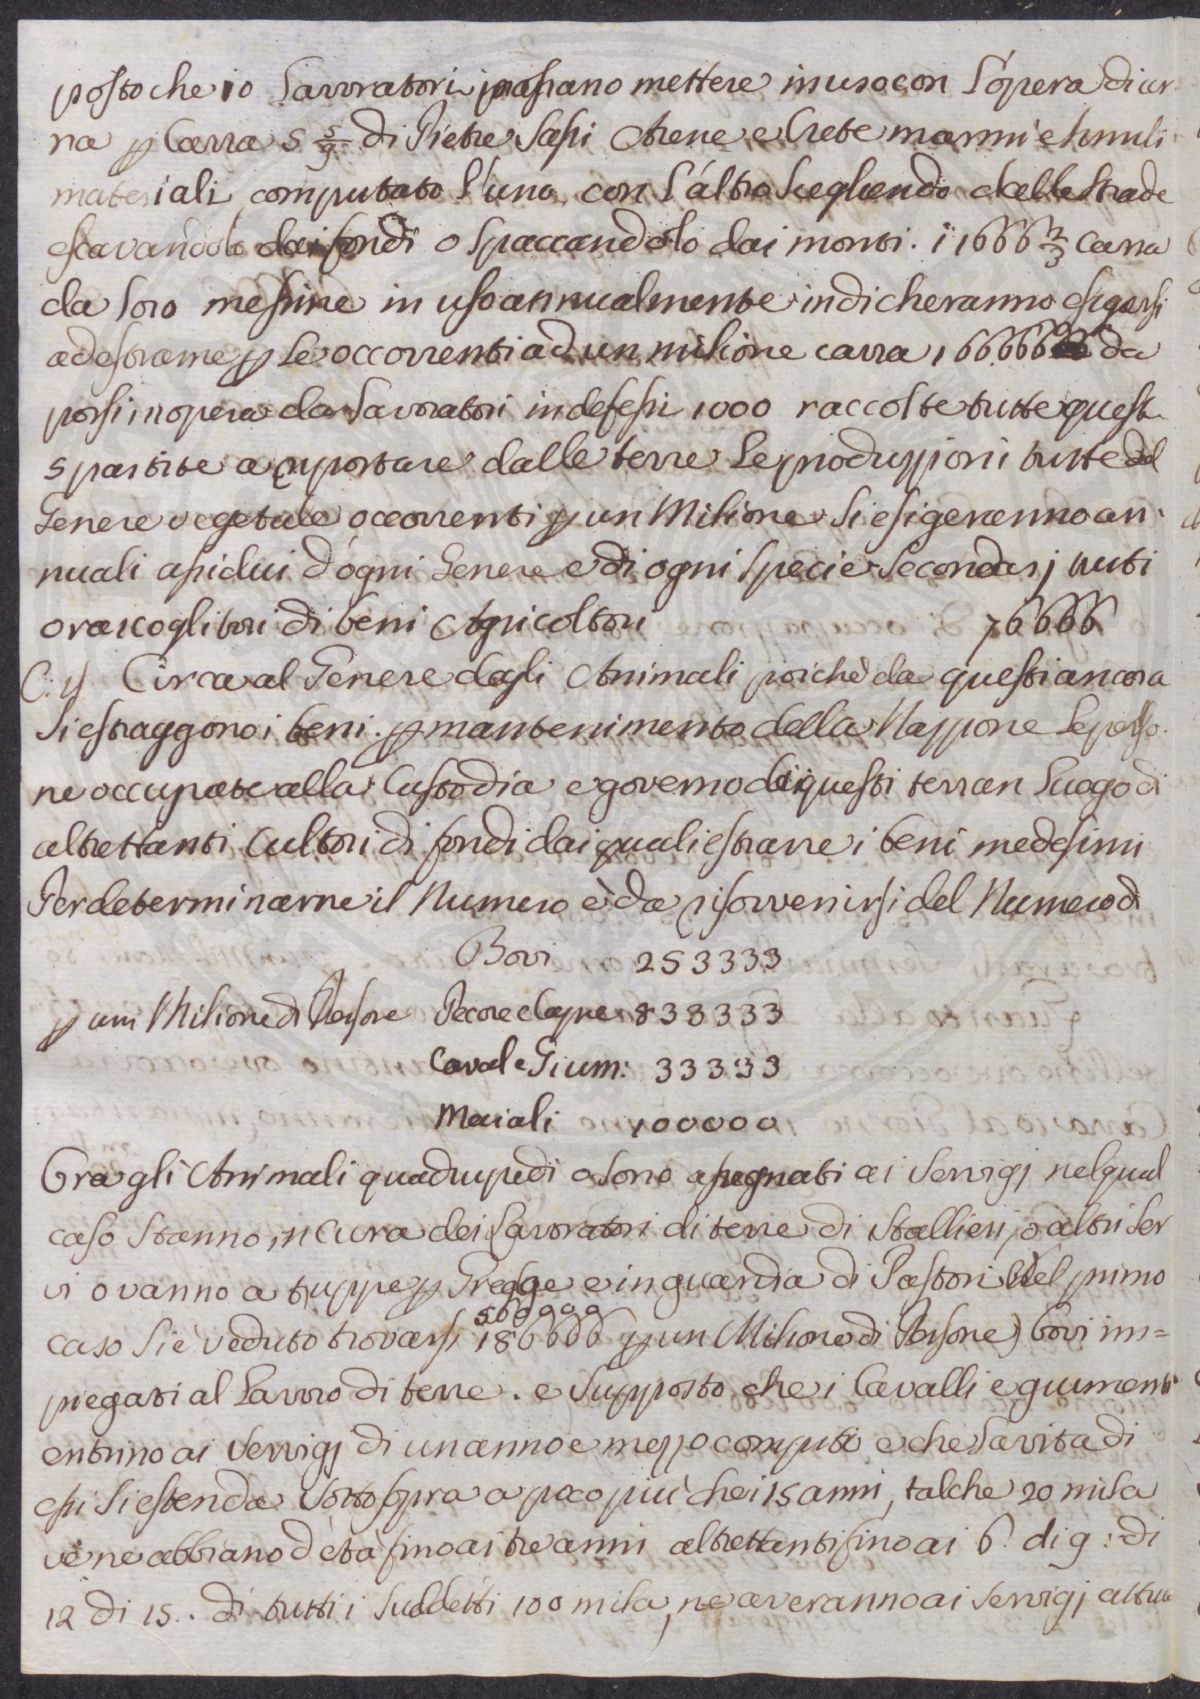 posto che 10 Lavoratori possano mettere in uso con l'opera diur
na p Carra 5 5/9 di Pietre Sassi Arene e Crete marmi e simili
materiali computato l'uno con l'altro scegliendo dalle strade
escavandolo dai fondi o spaccandolo dai monti. i 1666 2/3 carra
da loro messine in uso annualmente indicheranno esigersi
ad estrarne p le occorrenti ad un milione carra 166666 da
porsi in opera da Lavoratori indefessi 1000 raccolte tutte queste
5 partite a riportare dalle terre le produzzioni tutte del
Genere vegetale occorrenti p un Milione si esigeranno an
nuali assidui d'ogni Genere e di ogni specie secondarj tutti
o raccoglitori di beni Agricoltori 76666
C: 4 Circa al Genere degli Animali poichè da questi ancora
si estraggono i beni p mantenimento della Nazzione le perso
ne occupate alla Custodia e governo di questi terran luogo di
altrettanti Cultori di fondi dai quali estrarre i beni medesimi
Per determinarne il Numero è da risovvenirsi del Numero di
Bovi 253333
p un Milione di Persone Pecore e Capre 833333
Caval e Gium: 33333
Maiali 100000
Ora gli Animali quadrupedi o sono assegnati ai servigj nel qual
caso stanno in cura dei Lavoratori di terre di Stallieri, o altri ser
vi o vanno a truppe p Gregge e in guardia di Pastori Nel primo
560000
caso si è veduto trovarsi 186666 p un Milione di Persone) bovi im=
piegati al Lavoro di terre. e supposto che i Cavalli e giumenti
entrino ai servigj di un anno e mezzo computi e che la vita di
essi si estenda sotto sopra a poco più che i 15 anni, talche 20 mila
ve ne abbiano d'età fino ai tre anni altrettanti fino ai 6. di 9: di
12 di 15.. di tutti i suddetti 100 mila, ne averanno ai servigj attua